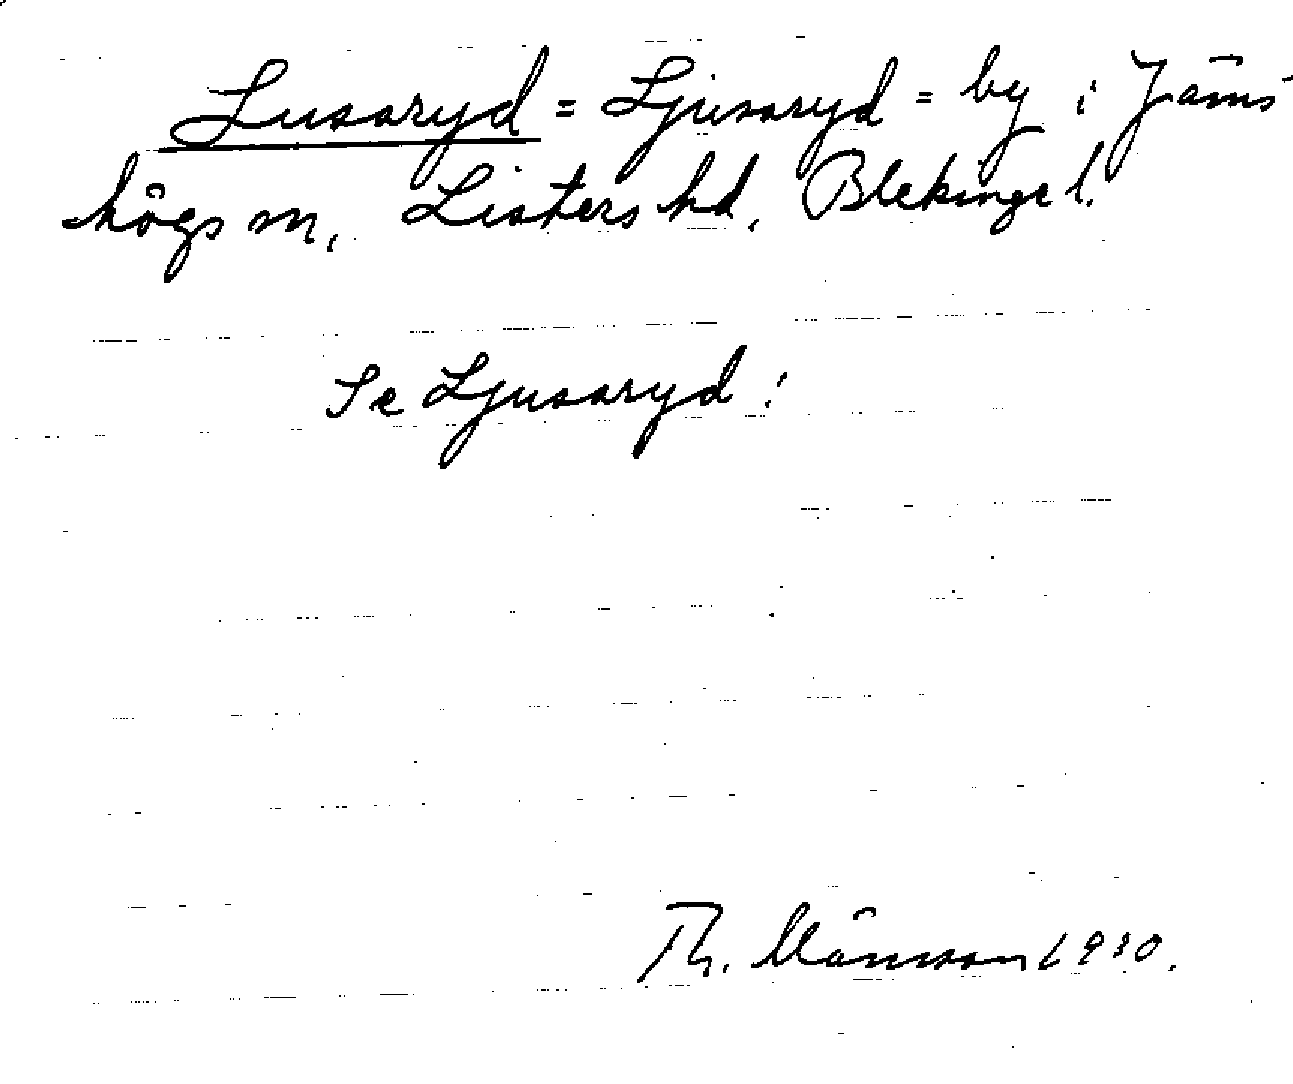 Lusaryd = Ljusaryd = by i Jäms
högs m, Listers hd, Blekinge l.
Se Ljusaryd!
Th. Månsson 1930.